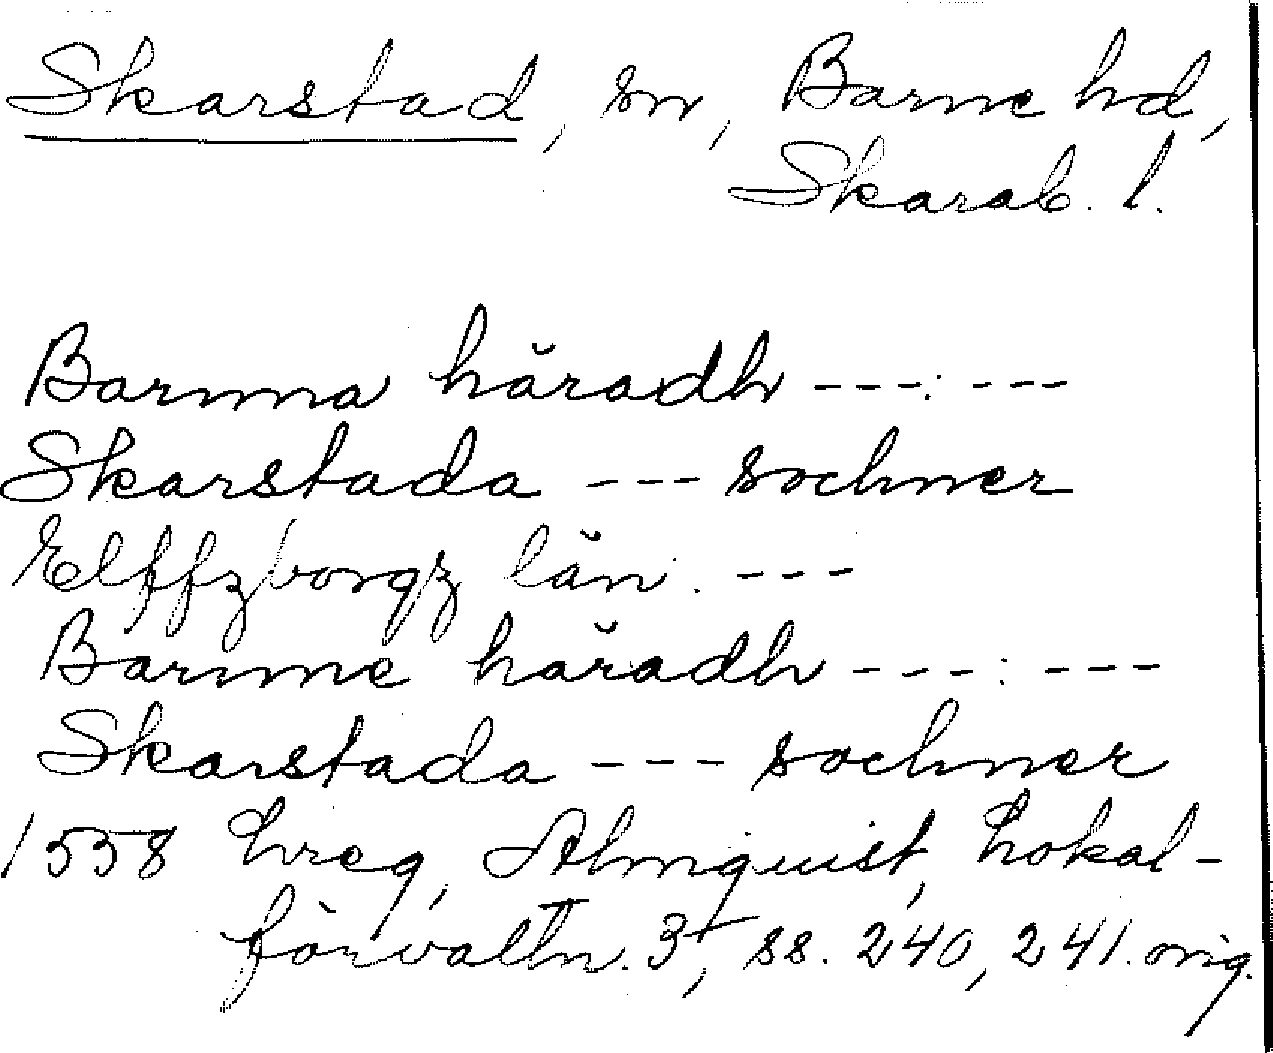 Skarstad, sn, Barne hd,
Skarab. l.
Barnna häradh ---:---
Skarstada --- sochner
Elffzborgz län. ---
Barnne häradh ---:---
Skarstada --- sochner
1558 Lreg, Almquist, Lokal-
förvaltn. 3, ss. 240, 241. orig.